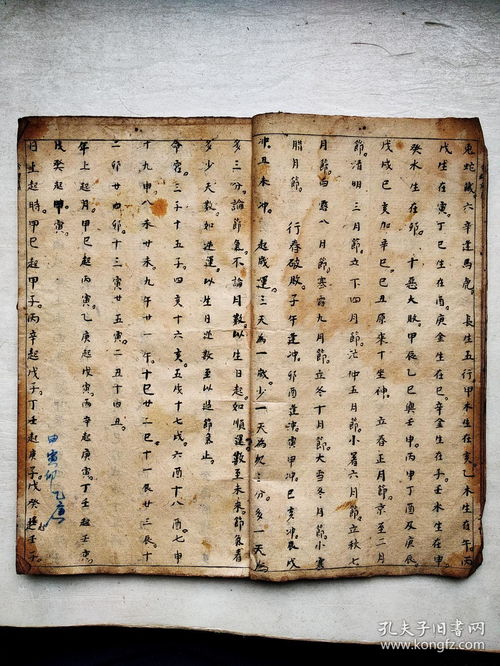 兎蛇藏六辛逢馬虎。長生五行甲木生在亥乙木生在午。丙
戊生在寅。丁巳生在酉。庚金生在巳。辛金生在子。壬水生在申
癸水生在卯。十惡大敗。甲辰乙巳與壬申。丙申丁酉及庚辰。
戊戌巳亥加辛巳。巳丑原來十坐神。立春正月節。京至二月
節。清明三月節。立下四月節。芒仲五月節。小署六月節。立秋七
月節。白露八月節。寒露九月節。立冬十月節。大雪冬月節。小寒
腊月節。行存破敗。子午逢冲。卯酉逢冲。寅甲冲。巳亥冲。辰戌
冲。丑未冲。起歲運。三天為一歲。少一天為欠三分。多一天為
多三分。論節氣。不論月數。以生日起。如順運數至未來節氣看
多少天數。如逆運。以生日逆數至以過節氣止。
命宮。三子十五子。四亥十六亥。五戌十七戌。六酉十八酉。七申
十九申。八未廿未。九午廿一午。十巳廿二巳。十一辰廿三辰。十
二卯廿四卯。十三寅廿五寅。二丑十四丑。
年上起月。甲巳起丙寅。乙庚起戊寅。丙辛起庚寅。丁壬起壬寅。
戊癸起甲寅。
日生起時。甲巳起甲子。丙辛起戊子。丁壬起庚子。戊癸起壬子
田寅卯乙庚
孔夫子旧书网
www.kongfz.com